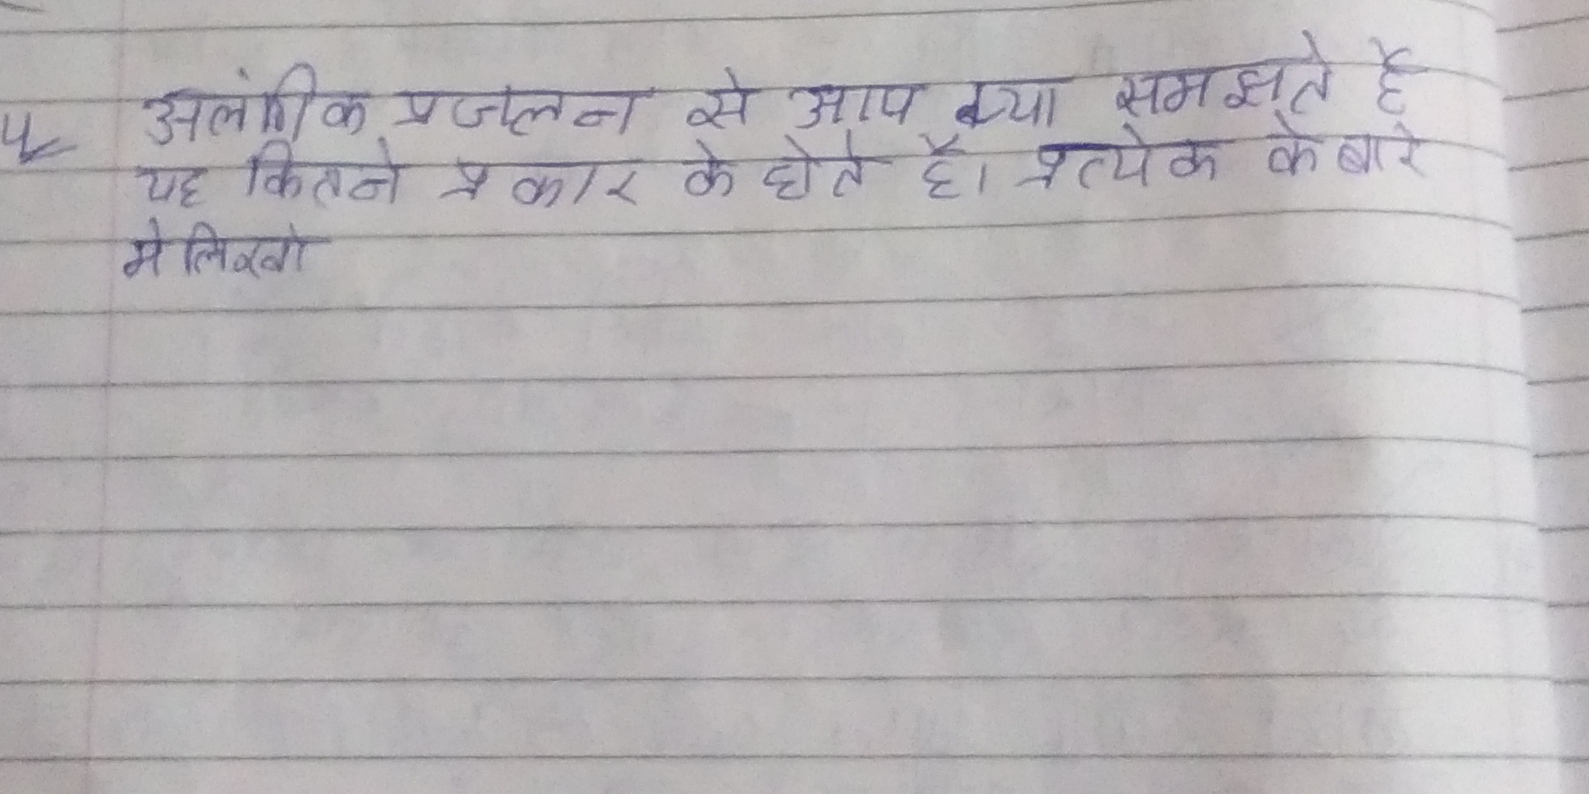 4 अलंगिक प्रजलन से आप क्या समझते है
यह कितने प्रकार के होते है। प्रत्येक के बारे
मे लिखो